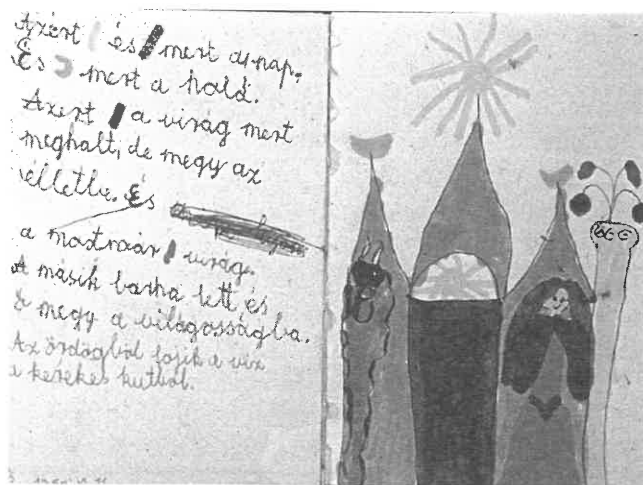 Azért és mert a nap.
És mert a hold.
Azert a virág mert
meghalt, de megy az
élletbe. És
a mostmár virág.
A másik barna lett és
megy a világosságba.
Az ördögből fojik a víz
a kerekes kutból.